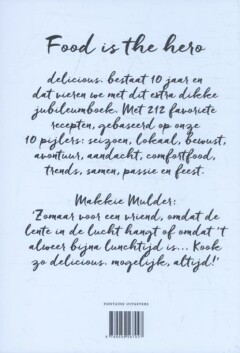 Food is the hero
delicious. bestaat 10 jaar en
dat vieren we met dit extra dikke
jubileumboek. Met 212 favoriete
recepten, gebaseerd op onze
10 pijlers: seizoen, lokaal, bewust,
avontuur, aandacht, comfortfood,
trends, samen, passie en feest.
Makkie Mulder:
'Zomaar voor een vriend, omdat de
lente in de lucht hangt of omdat 't
alweer bijna lunchtijd is... Kook
zo delicious. mogelijk, altijd!'
FONTAINE UITGEVERS